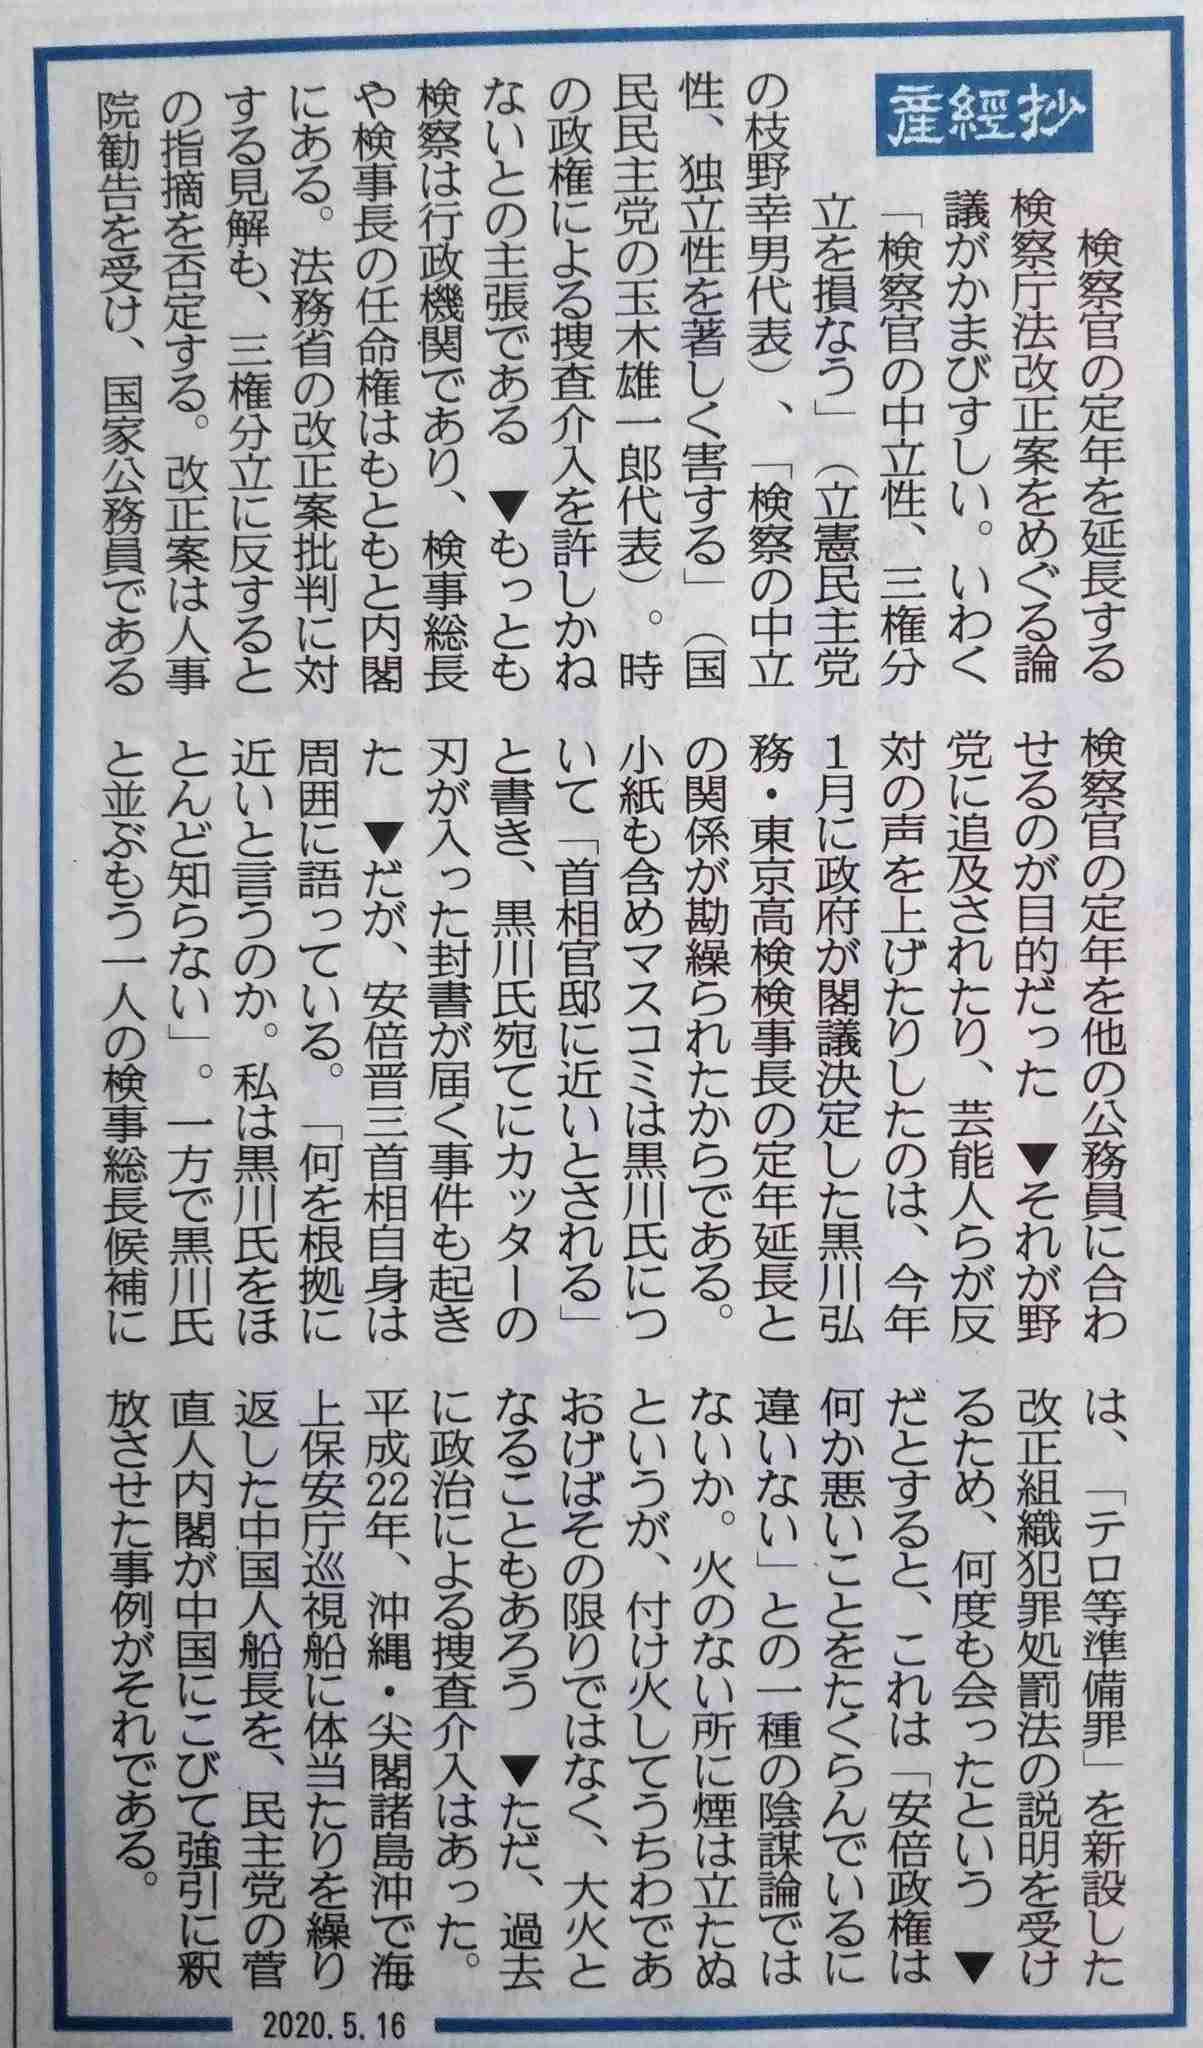 産經抄
検察官の定年を延長する
検察庁法改正案をめぐる論
議がかまびすしい。いわく
「検察官の中立性、三権分
立を損なう」（立憲民主党
の枝野幸男代表）、「検察の中立
性、独立性を著しく害する」（国
民民主党の玉木雄一郎代表）。時
の政権による捜査介入を許しかね
ないとの主張である　▼もっとも
検察は行政機関であり、検事総長
や検事長の任命権はもともと内閣
にある。法務省の改正案批判に対
する見解も、三権分立に反すると
の指摘を否定する。改正案は人事
院勧告を受け、国家公務員である
検察官の定年を他の公務員に合わ
せるのが目的だった　▼それが野
党に追及されたり、芸能人らが反
対の声を上げたりしたのは、今年
１月に政府が閣議決定した黒川弘
務・東京高検検事長の定年延長と
の関係が勘繰られたからである。
小紙も含めマスコミは黒川氏につ
いて「首相官邸に近いとされる」
と書き、黒川氏宛てにカッターの
刃が入った封書が届く事件も起き
た　▼だが、安倍晋三首相自身は
周囲に語っている。「何を根拠に
近いと言うのか。私は黒川氏をほ
とんど知らない」。一方で黒川氏
と並ぶもう一人の検事総長候補に
は、「テロ等準備罪」を新設した
改正組織犯罪処罰法の説明を受け
るため、何度も会ったという　▼
だとすると、これは「安倍政権は
何か悪いことをたくらんでいるに
違いない」との一種の陰謀論では
ないか。火のない所に煙は立たぬ
というが、付け火してうちわであ
おげばその限りではなく、大火と
なることもあろう　▼ただ、過去
に政治による捜査介入はあった。
平成22年、沖縄・尖閣諸島沖で海
上保安庁巡視船に体当たりを繰り
返した中国人船長を、民主党の菅
直人内閣が中国にこびて強引に釈
放させた事例がそれである。
2020.5.16